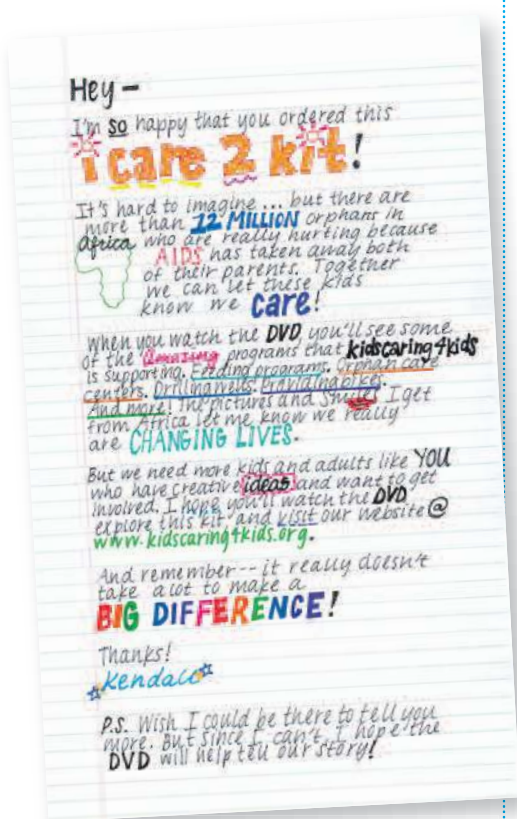 Hey –
I'm so happy that you ordered this
i care 2 kit!
It's hard to imagine ... but there are
more than 12 MILLION orphans in
Africa who are really hurting because
AIDS has taken away both
of their parents. Together
we can let these kids
know we care!
When you watch the DVD you'll see some
of the amazing programs that kidscaring4kids
is supporting. Feeding programs. Orphan care
centers. Drilling wells. Providing bikes.
And more! The pictures and smiles I get
from Africa let me know we really
are CHANGING LIVES.
But we need more kids and adults like YOU
who have creative ideas and want to get
involved. I hope you'll watch the DVD
explore this kit, and visit our website @
www.kidscaring4kids.org.
And remember -- it really doesn't
take a lot to make a
BIG DIFFERENCE!
Thanks!
Kendall
P.S. Wish I could be there to tell you
more. But since I can't, I hope the
DVD will help tell our story!